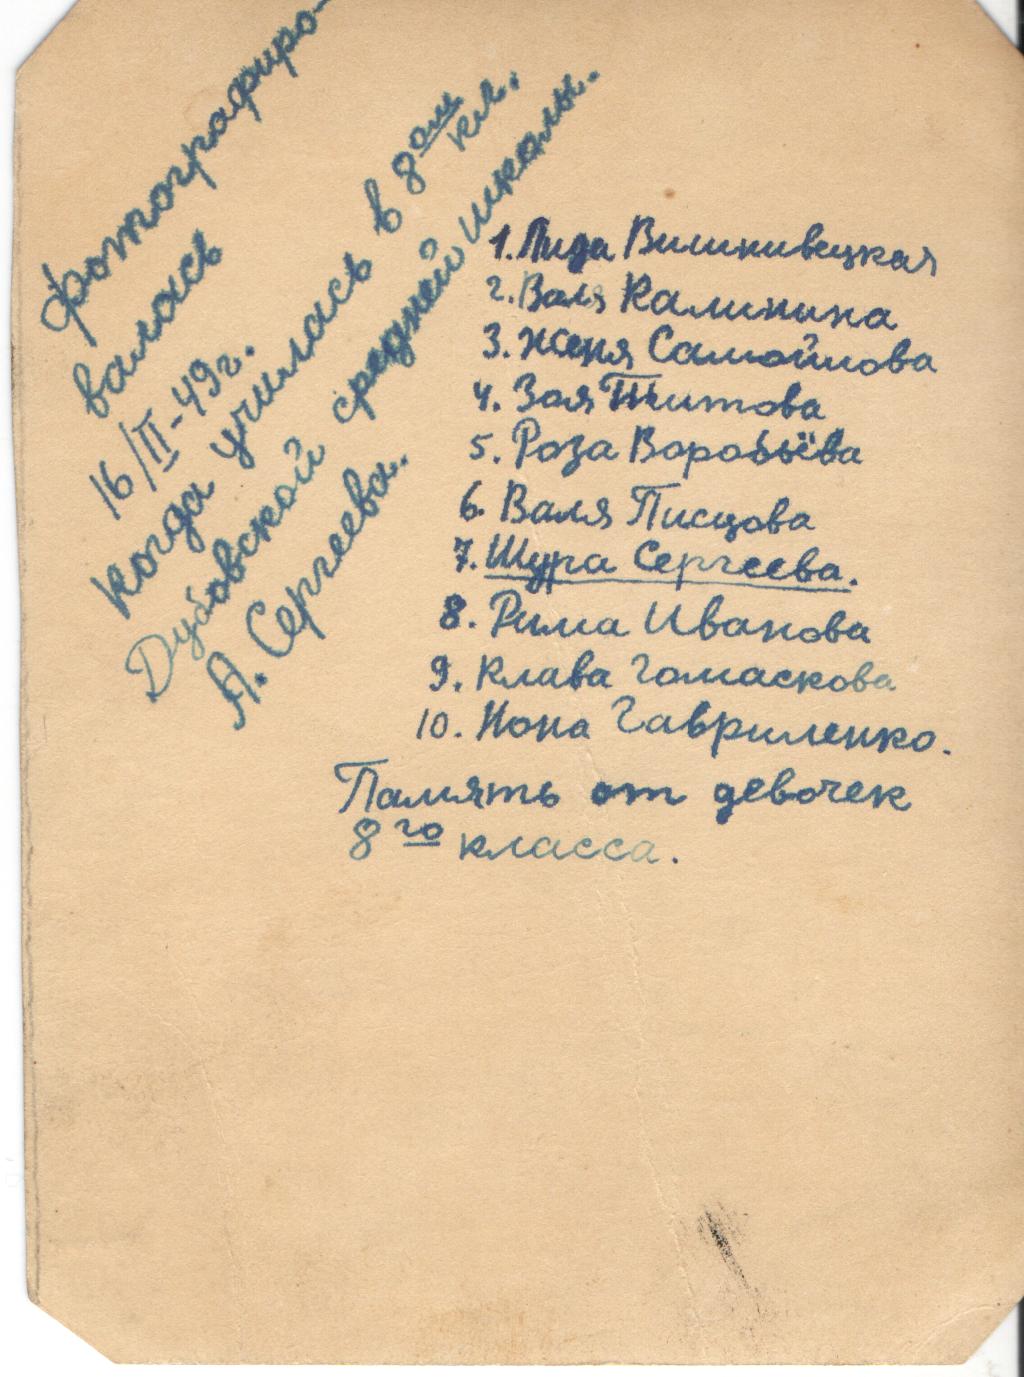 Фотографиро-
валась
16/II-49г.
когда училась в 8ом кл.
Дубовской средней школы.
А. Сергеева.
1. Лида Вишнивецкая
2. Валя Калинина
3. Женя Самойлова
4. Зоя Титова
5. Роза Воробьёва
6. Валя Писцова
7. Шура Сергеева.
8. Рима Иванова
9. Клава Гомаскова
10. Нона Гавриленко.
Память от девочек
8го класса.